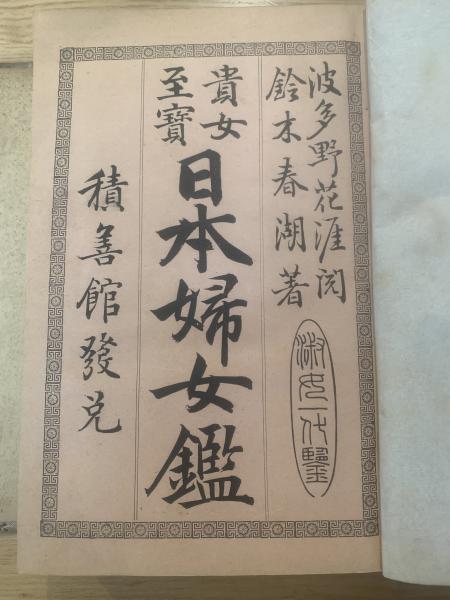 波多野花涯閲
鈴木春湖著
淑女一代鑒
貴女
至寶
日本婦女鑑
積善館發兌